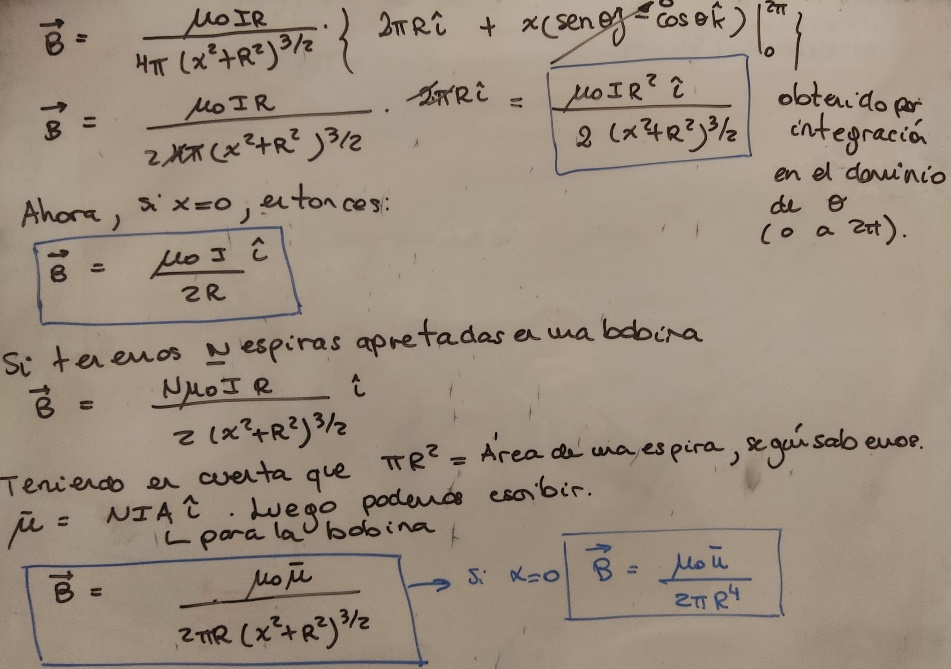 B⃗ = μ₀IR / 4π (x²+R²)^3/2 · { 2πRî + x(senθĵ - cosθk̂) |₀^2π }
B⃗ = μ₀IR / 24π (x²+R²)^3/2 · 2πRî = μ₀IR² î / 2 (x²+R²)^3/2
obtenido por
integración
en el dominio
de θ
(0 a 2π).
Ahora, si x=0, entonces:
B⃗ = μ₀ I î / 2R
Si tenemos N espiras apretadas en una bobina
B⃗ = Nμ₀I R / 2 (x²+R²)^3/2 î
Teniendo en cuenta que πR² = Área de una espira, según sabemos.
μ̄ = NIA î . Luego podemos escribir.
∟ para la bobina
B⃗ = μ₀μ̄ / 2πR (x²+R²)^3/2 → Si x=0 B⃗ = μ₀μ̄ / 2πR⁴